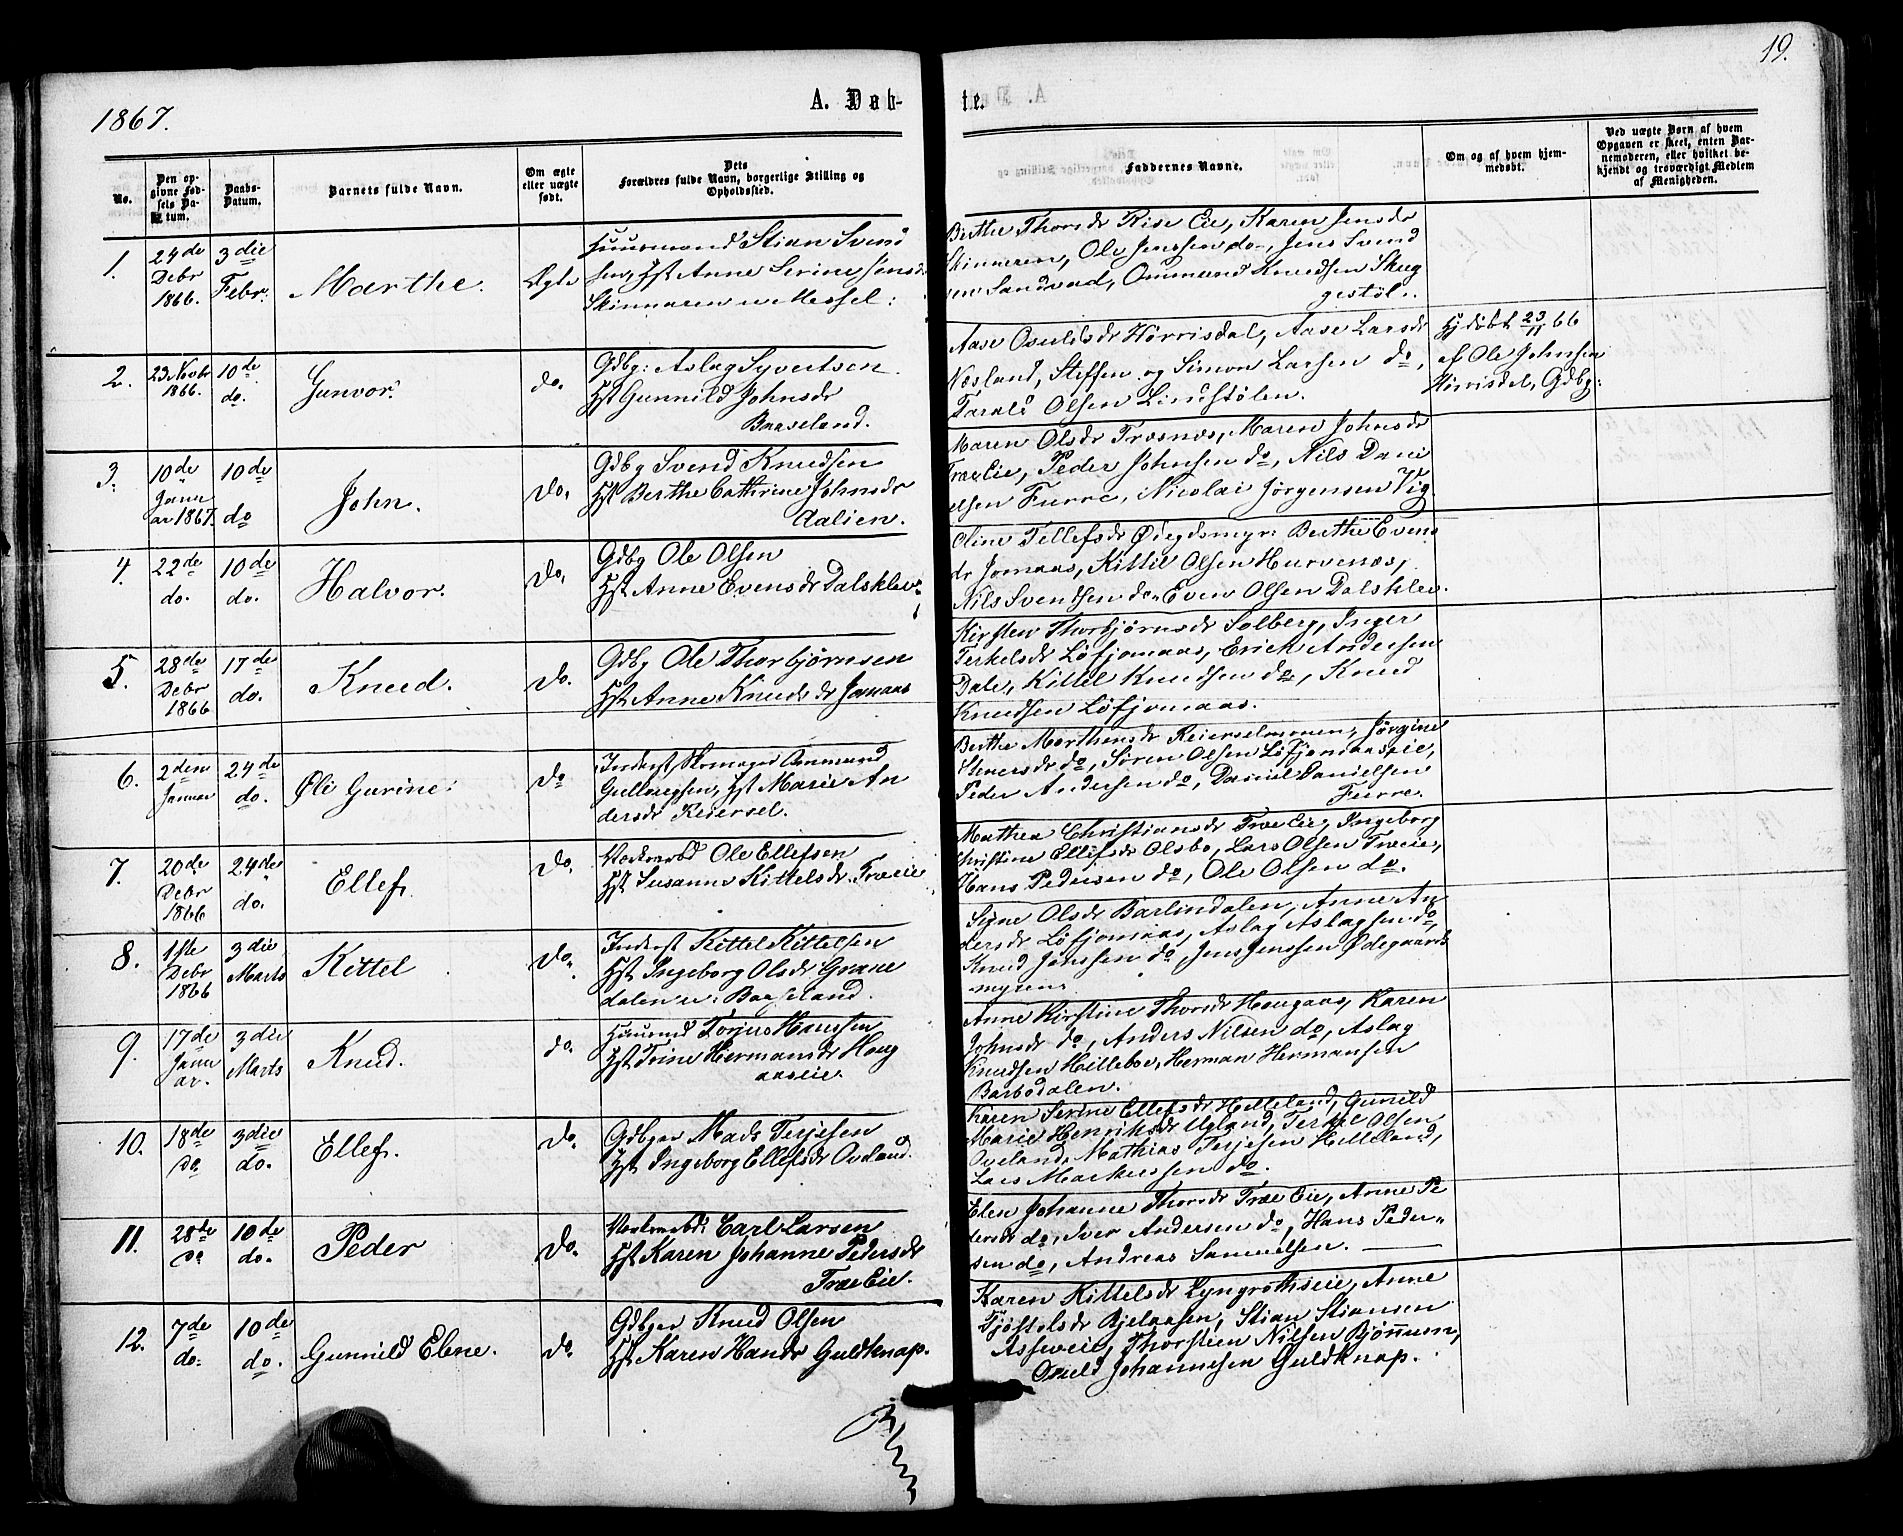 19.
1867.
A. Døb-
te.
No.
Den op-
givne Fød-
sels Da-
tum.
Daabs-
Datum.
Barnets fulde Navn.
Om ægte
eller uægte
født.
Dets
Forældres fulde Navn, borgerlige Stilling og
Opholdssted.
Faddernes Navne.
Om og af hvem hjem-
medøbt.
Ved uægte Børn af hvem
Opgaven er skeet, enten Bar-
nemoderen, eller hvilket be-
kjendt og troværdigt Medlem
af Menigheden.
1.
24de
Debr
1866.
3die
Febr.
Marthe.
Ægte
Huusmand Stian Svend
sen, Hst Anne Serine Jensdr
Skinmaren u. Messel:
Berthe Thorsdr Rise Eie, Karen Jensdr
Skinmaren, Ole Jenssen do, Jens Svend
sen Sandvad, Ommund Knudsen Skug
gestøl.
2.
23 Novbr
1866.
10de
do.
Gunvor.
do.
Gdbg: Aslag Syvertsen.
Hst Gunnild Johnsdr
Baaseland.
Aase Osuldsdr Hørrisdal, Aase Larsdr
Næsland, Steffen og Simon Larsen do,
Tarald Olsen Lindstølen.
Hj døbt 23/11 66
af Ole Johnsen
Hørrisdal, Gdbg:
3.
10de
Janu
ar 1867.
10de
do
John.
do.
Gdbg Svend Knudsen
Hst Berthe Cathrine Johnsdr
Aalien.
Maren Olsdr Træsnæs, Maren Johnsdr
Træ Eie, Peder Johnsen do, Nils Dani
elsen Furre, Nicolai Jørgensen Vig.
4.
22de
do.
10de
do.
Halvor.
do.
Gdbg Ole Olsen
Hst Anne Evensdr Dalsklev.
Oline Tellefsdr Ødegdsmyr: Berthe Evens
dr Jomaas, Kittil Olsen Hurvenæs,
Nils Svendsen do, Even Olsen Dalsklev.
5.
28de
Debr
1866
17de
do.
Knud.
do.
Gdbg Ole Thorbjørnsen
Hst Anne Knudsdr Jomaas
Kirsten Thorbjørnsdr Solberg, Inger
Terkelsdr Løfjomaas, Erick Andersen
Dale, Kittel Knudsen do, Knud
Knudsen Løfjomaas.
6.
2den
Januar
24de
do.
Øli Gurine.
do
Inderst Skomager Ommund
Gullveigsen, Hst Marie An
dersdr Reiersel.
Berthe Morthensdr Reierselmoen, Jørgine
Stenersdr do, Søren Olsen Løfjomaaseie,
Peder Andersen do, Daniel Danielsen
Furre.
7.
20de
Debr
1866
24de
do.
Ellef.
do.
Værksarbd Ole Ellefsen
Hst Susanne Kittelsdr Træeie
Mathea Christiansdr Træ Eie, Ingeborg
Christine Ellefsdr Olsbo, Lars Olsen Træeie,
Hans Pedersen do, Ole Olsen do.
8.
1ste
Debr
1866
3die
Marts
Kittel
do.
Inderst Kittel Kittelsen
Hst Ingeborg Olsdr Grane
dalen u: Baaseland.
Signe Olsdr Barlindalen, Anne An
dersdr Løfjomaas, Aslag Aslagsen do,
Knud Jenssen do, Jens Jenssen Ødegaards
myren.
9.
17de
Janu
ar.
3die
Marts
Knud.
do.
Huusmd Torjus Hanssen
Hst Trine Hermansdr Houg
aaseie.
Anne Kirstine Thorsdr Hougaas, Karen
Johnsdr do, Anders Nilsen do, Aslag
Knudsen Hillebo, Herman Hermansen
Barbodalen.
10.
18de
do
3die
do.
Ellef.
do.
Gdbger Mads Terjesen
Hst Ingeborg Ellefsdr Oveland.
Karen Serine Ellefsdr Helleland, Gunild
Marie Henriksdr Ugland, Terkel Olsen
Oveland, Mathias Terjesen Helleland,
Lars Markussen do.
11.
28de
do
10de
do.
Peder
do.
Værksarbd: Carl Larsen
Hst Karen Johanne Pedersdr
Træ Eie.
Elen Johanne Thorsdr Træ Eie, Anne Pe
dersdr do, Iver Andersen do, Hans Peder-
sen do, Andreas Samuelsen.
12.
7de
do.
10de
do.
Gunnild Elene.
do.
Gdbger Knud Olsen
Hst Karen Hansdr Guldknap.
Karen Kittelsdr Lyngrothseie, Anne
Tjøstelsdr Bjelaasen, Stian Stiansen
Asseveie, Thorstein Nilsen Bjønnum,
Osuld Johannesen Guldknap.